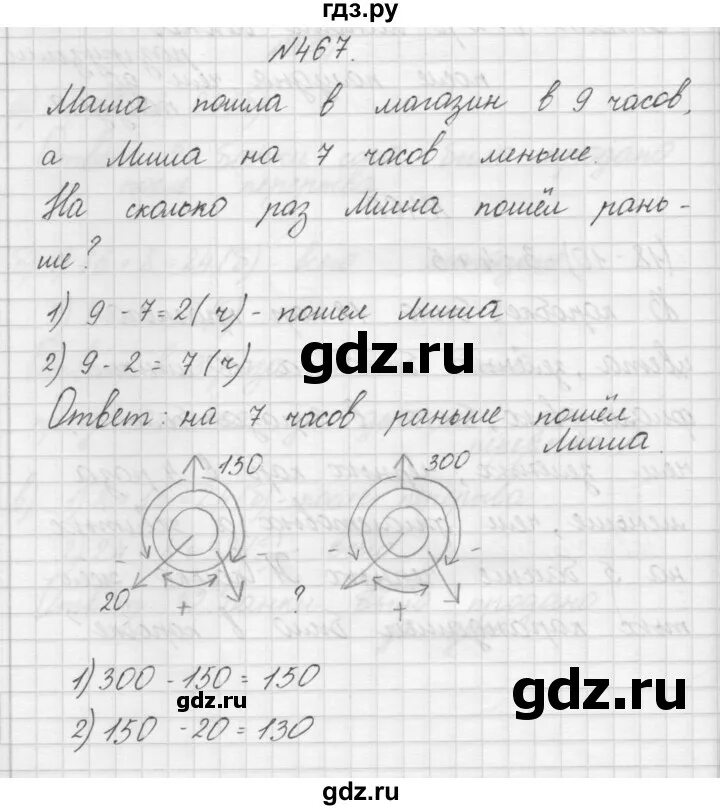 гдз.ру
№467.
Маша пошла в магазин в 9 часов,
а Миша на 7 часов меньше.
На сколько раз Миша пошёл рань-
ше?
1) 9 - 7 = 2(ч) - пошел Миша
2) 9 - 2 = 7(ч)
gdz.ru
Ответ: на 7 часов раньше пошёл
Миша.
150
300
- -
- -
20
+
?
+
1) 300 - 150 = 150
gdz.ru
2) 150 - 20 = 130
gdz.ru
gdz.ru